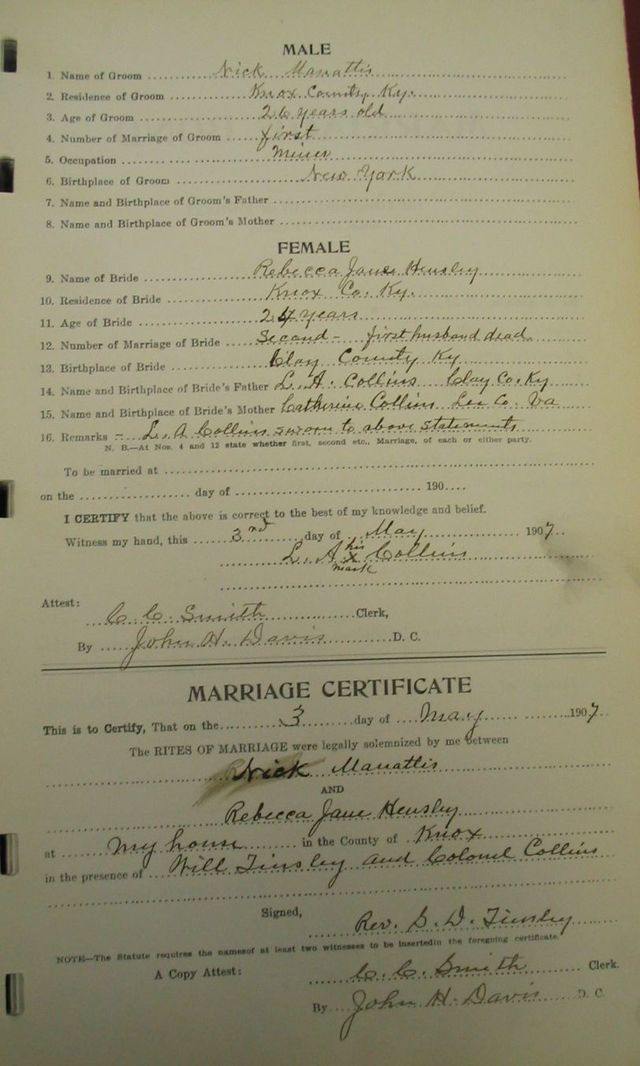 MALE
1. Name of Groom Nick Manattis
2. Residence of Groom Knox County, Ky.
3. Age of Groom 26 years old
4. Number of Marriage of Groom first
5. Occupation Miner
6. Birthplace of Groom New York
7. Name and Birthplace of Groom's Father
8. Name and Birthplace of Groom's Mother
FEMALE
9. Name of Bride Rebecca Jane Hensley
10. Residence of Bride Knox Co. Ky.
11. Age of Bride 24 years
12. Number of Marriage of Bride Second - first husband dead
13. Birthplace of Bride Clay County Ky
14. Name and Birthplace of Bride's Father L. A. Collins Clay Co. Ky
15. Name and Birthplace of Bride's Mother Catherine Collins Lee Co. Va
16. Remarks - L. A Collins sworn to above statements
N. B.—At Nos. 4 and 12 state whether first, second etc., Marriage, of each or either party.
To be married at
on the day of 190
I CERTIFY that the above is correct to the best of my knowledge and belief.
Witness my hand, this 3rd day of May 1907
L. A his x mark Collins
Attest:
C. C. Smith Clerk,
By John H. Davis D. C.
MARRIAGE CERTIFICATE
This is to Certify, That on the 3 day of May 1907
The RITES OF MARRIAGE were legally solemnized by me between
Nick Manattis
AND
Rebecca Jane Hensley
at My house in the County of Knox
in the presence of Will Tinsley and Colonel Collins
Signed,
Rev. G. D. Tinsley
NOTE—The Statute requires the namesof at least two witnesses to be insertedin the foregoing certificate.
A Copy Attest: C. C. Smith Clerk.
By John H. Davis D. C.